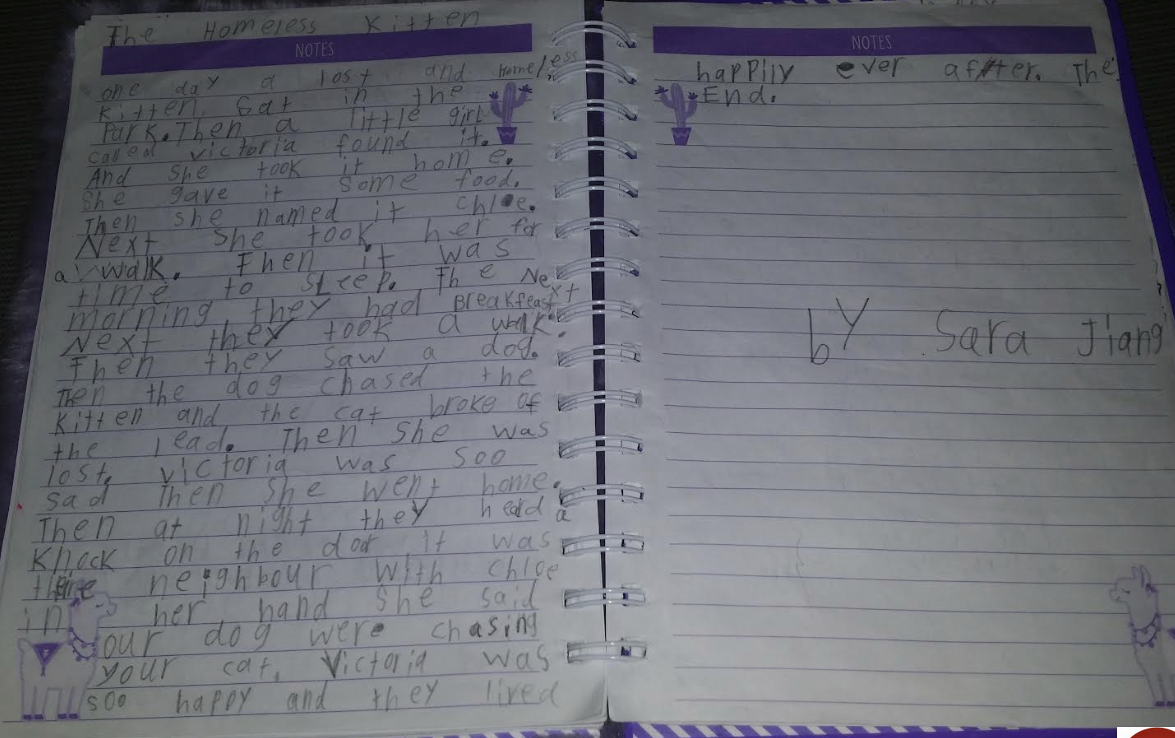 The Homeless Kitten
NOTES
one day a lost and homeless
kitten, sat in the
park. Then a little girl
called victoria found it.
And she took it home.
she gave it some food.
Then she named it chloe.
Next she took her for
a walk. Then it was
time to sleep. The Next
morning they had Breakfeast
Next they took a walk.
Then they saw a dog.
Then the dog chased the
kitten and the cat broke of
the lead. Then she was
lost, victoria was soo
sad Then she went home.
Then at night they heard a
knock on the door it was
there neighbour with chloe
in her hand she said
our dog were chasing
your cat, Victoria was
soo happy and they lived
NOTES
happily ever after. The
End.
by Sara Jiang